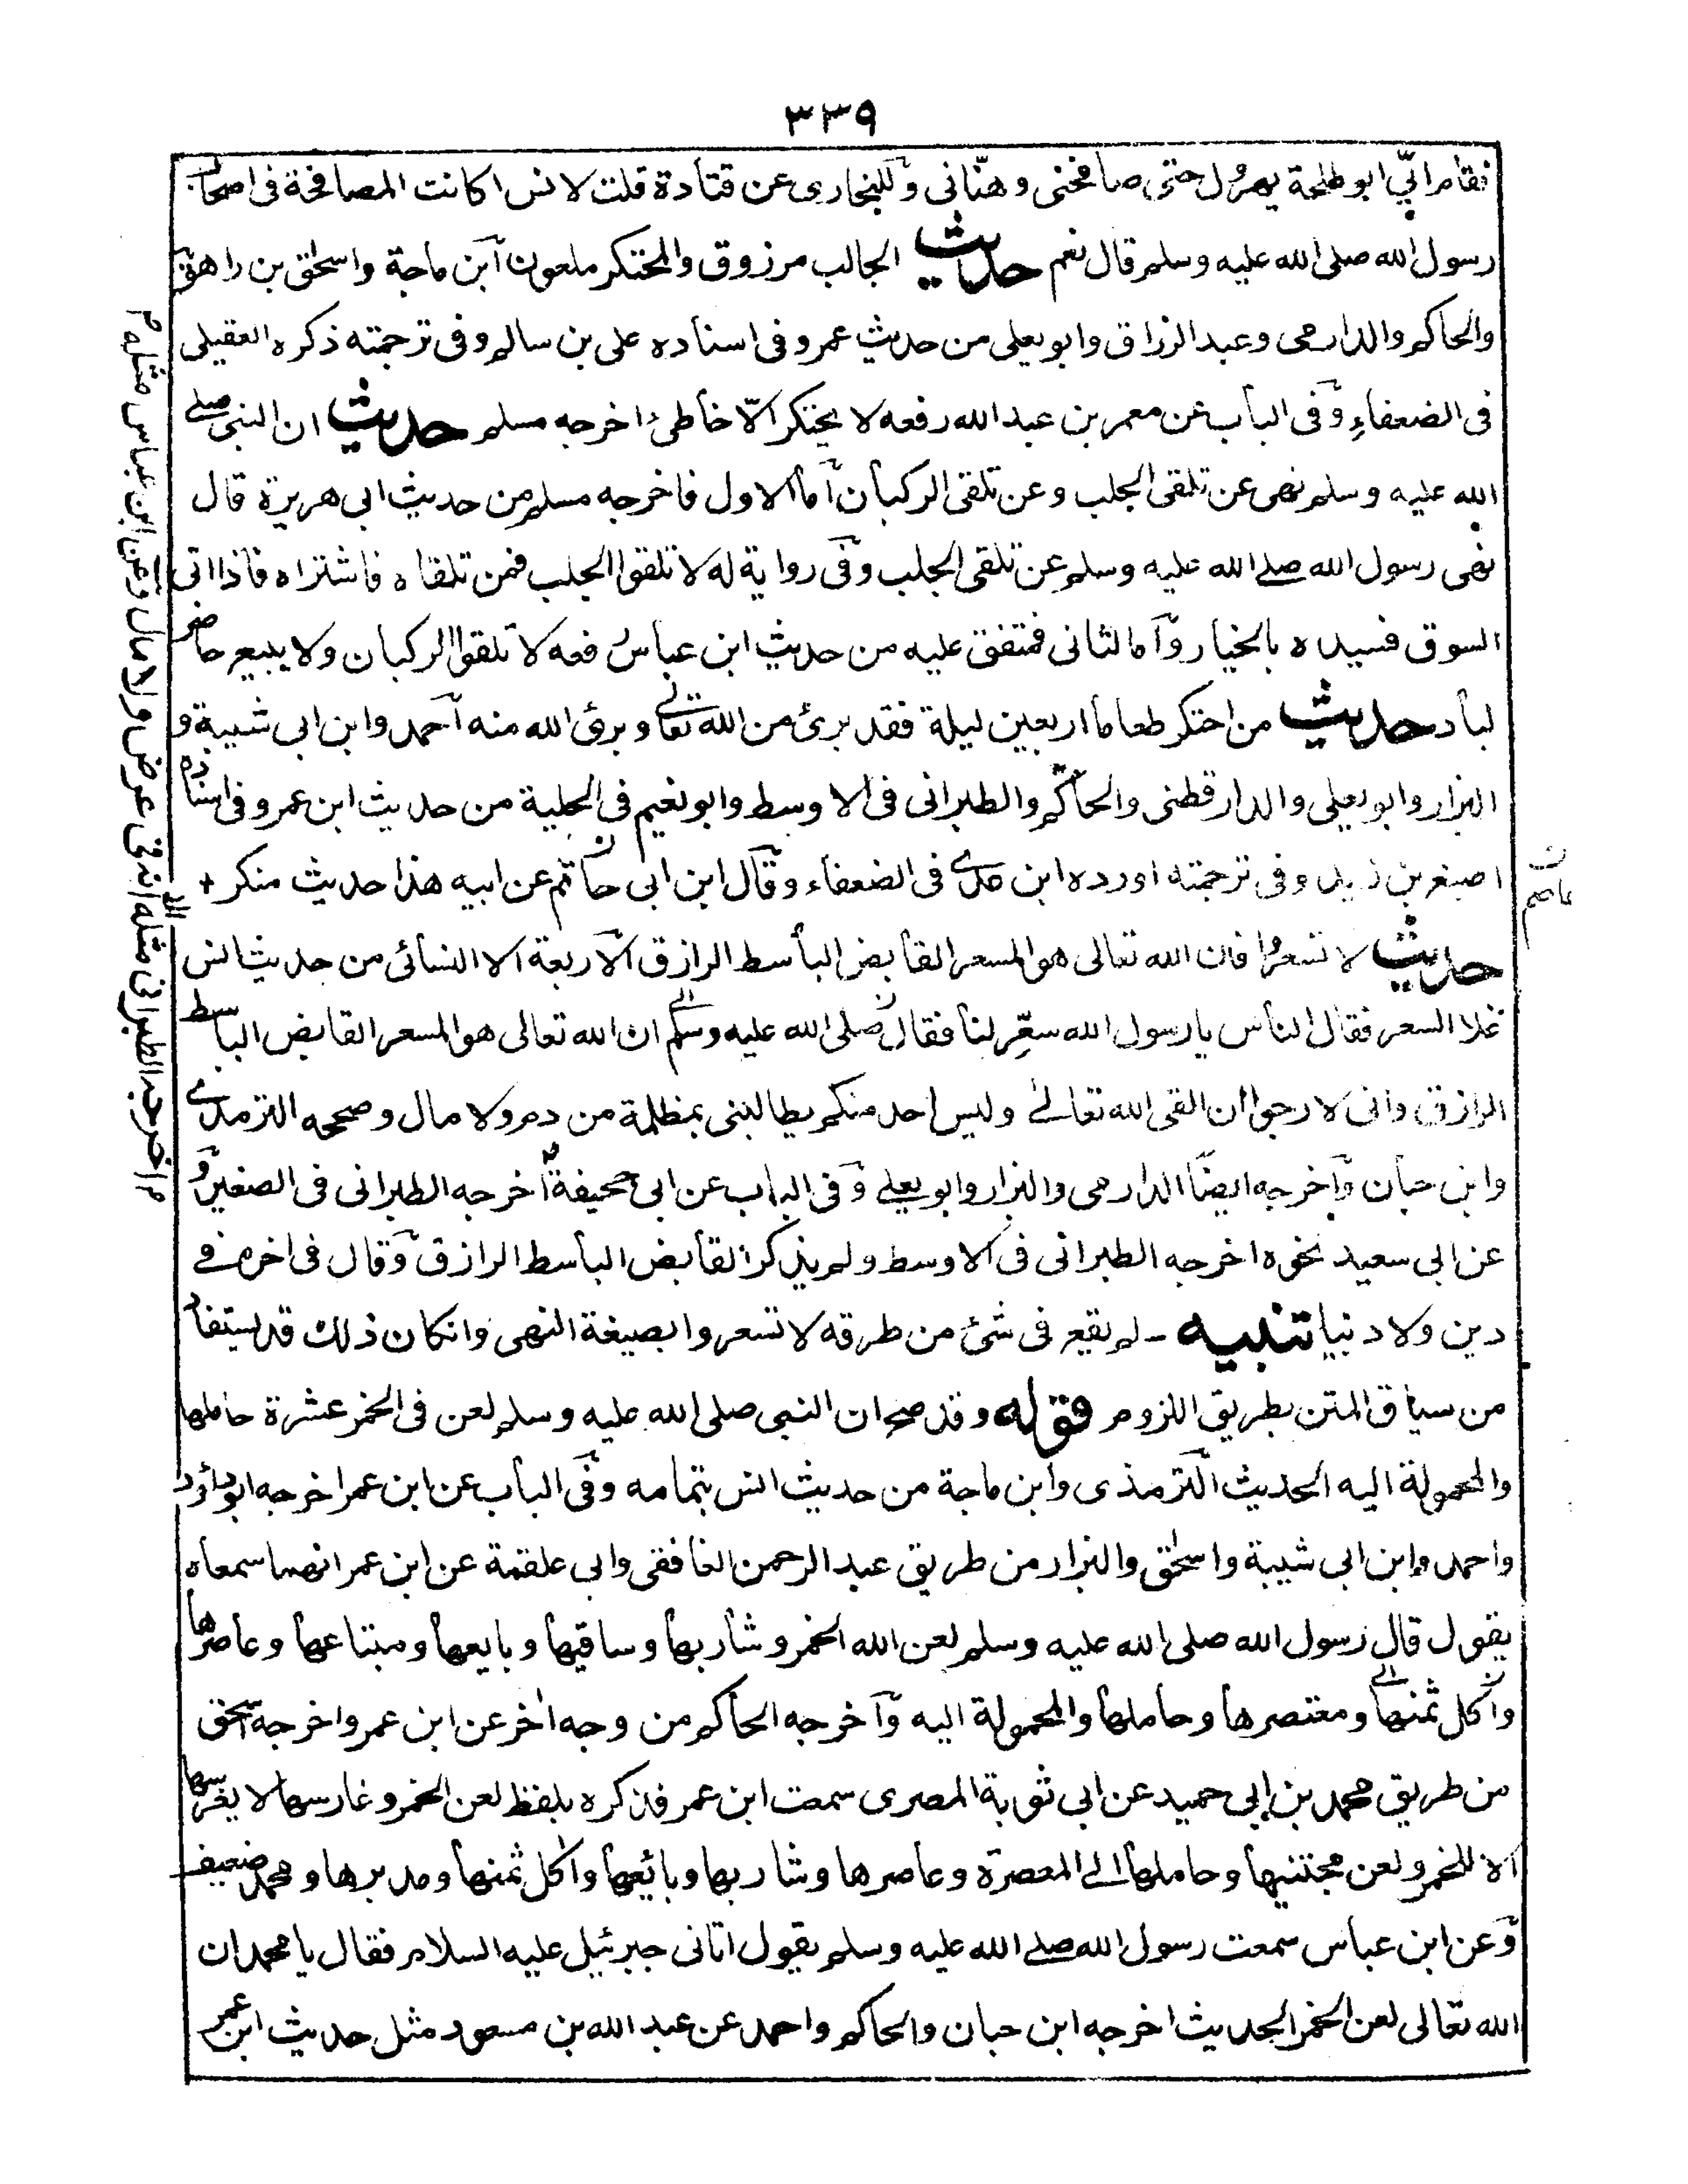 ٣٣٩
فقام الیّ ابو طلحة یهرول حتی صافحنی و هنّانی و للبخاری عن قتادة قلت لانس اکانت المصافحة فی اصحاب
رسول الله صلی الله علیه وسلم قال نعم حدیث الجالب مرزوق والمحتکر ملعون ابن ماجة واسحٰق بن راهویه
والحاکم والدارمی وعبد الرزاق وابو یعلی من حدیث عمر وفی اسناده علی بن سالم وفی ترجمته ذکره العقیلی
فی الضعفاءِ وفی الباب عن معمر بن عبد الله رفعه لا یحتکر الّا خاطیٔ اخرجه مسلم حدیث ان النبی صلے
الله علیه وسلم نهی عن تلقی الجلب وعن تلقی الرکبان اما الاول فاخرجه مسلم من حدیث ابی هریرة قال
نهی رسول الله صلے الله علیه وسلم عن تلقی الجلب وفی روایة له لا تلقوا الجلب فمن تلقاه فاشتراه فاذا اتی
السوق فسیده بالخیار واما الثانی فمتفق علیه من حدیث ابن عباس رفعه لا تلقوا الرکبان ولا یبیع حاضر
لباد حدیث من احتکر طعاما اربعین لیلة فقد بریٔ من الله تعالے وبریٔ الله منه احمد وابن ابی شیبة و
البزار وابو یعلی والدارقطنی والحاکم والطبرانی فی الاوسط وابو نعیم فی الحلیة من حدیث ابن عمر وفی اسناده
اصبغ بن زید وفی ترجمته اورده ابن عدے فی الضعفاء وقال ابن ابی حاتم عن ابیه هذا حدیث منکر +
حدیث لا تسعروا فان الله تعالی هو المسعر القابض الباسط الرازق الاربعة الا النسائی من حدیث انس
غلا السعر فقال الناس یا رسول الله سعِّر لنا فقال صلی الله علیه وسلم ان الله تعالی هو المسعر القابض الباسط
الرازق وانی لارجوا ان القی الله تعالےٰ ولیس احد منکم یطالبنی بمظلمة من دم ولا مال وصححه الترمذے
وابن حبان واخرجه ایضًا الدارمی والبزار وابو یعلے وفی الباب عن ابی جحیفة اخرجه الطبرانی فی الصغیر و
عن ابی سعید نحوه اخرجه الطبرانی فی الاوسط ولم یذکر القابض الباسط الرازق وقال فی اخره فے
دین ولا دنیا تنبیه - لم یقع فی شیٔ من طرقه لا تسعروا بصیغة النهی وانکان ذلك قد یستفاد
من سیاق المتن بطریق اللزوم قوله وقد صح ان النبی صلی الله علیه وسلم لعن فی الخمر عشرة حاملها
والمحمولة الیه الحدیث الترمذی وابن ماجة من حدیث انس بتمامه وفی الباب عن ابن عمر اخرجه ابو داؤد
واحمد وابن ابی شیبة واسحٰق والبزار من طریق عبد الرحمن الغافقی وابی علقمة عن ابن عمر انهما سمعاه
یقول قال رسول الله صلی الله علیه وسلم لعن الله الخمر وشاربها وساقیها وبایعها ومبتاعها وعاصرها
وآکل ثمنها ومعتصرها وحاملها والمحمولة الیه واخرجه الحاکم من وجه اٰخر عن ابن عمر واخرجه اسحٰق
من طریق محمد بن ابی حمید عن ابی ثوبة المصری سمعت ابن عمر فذکره بلفظ لعن الخمر وغارسها لا یغرسها
الا للخمر ولعن مجتنیها وحاملها الے المعصرة وعاصرها وشاربها وبائعها واٰکل ثمنها ومدیرها ومحمد ضعیف
وعن ابن عباس سمعت رسول الله صلے الله علیه وسلم یقول اتانی جبرئیل علیه السلام فقال یا محمد ان
الله تعالی لعن الخمر الحدیث اخرجه ابن حبان والحاکم واحمد عن عبد الله بن مسعود مثل حدیث ابن عمر
ن
عاصم
م اخرجه الطبرانی مثله انه فی عرض ولا مال وعن ابن عباس مثله م